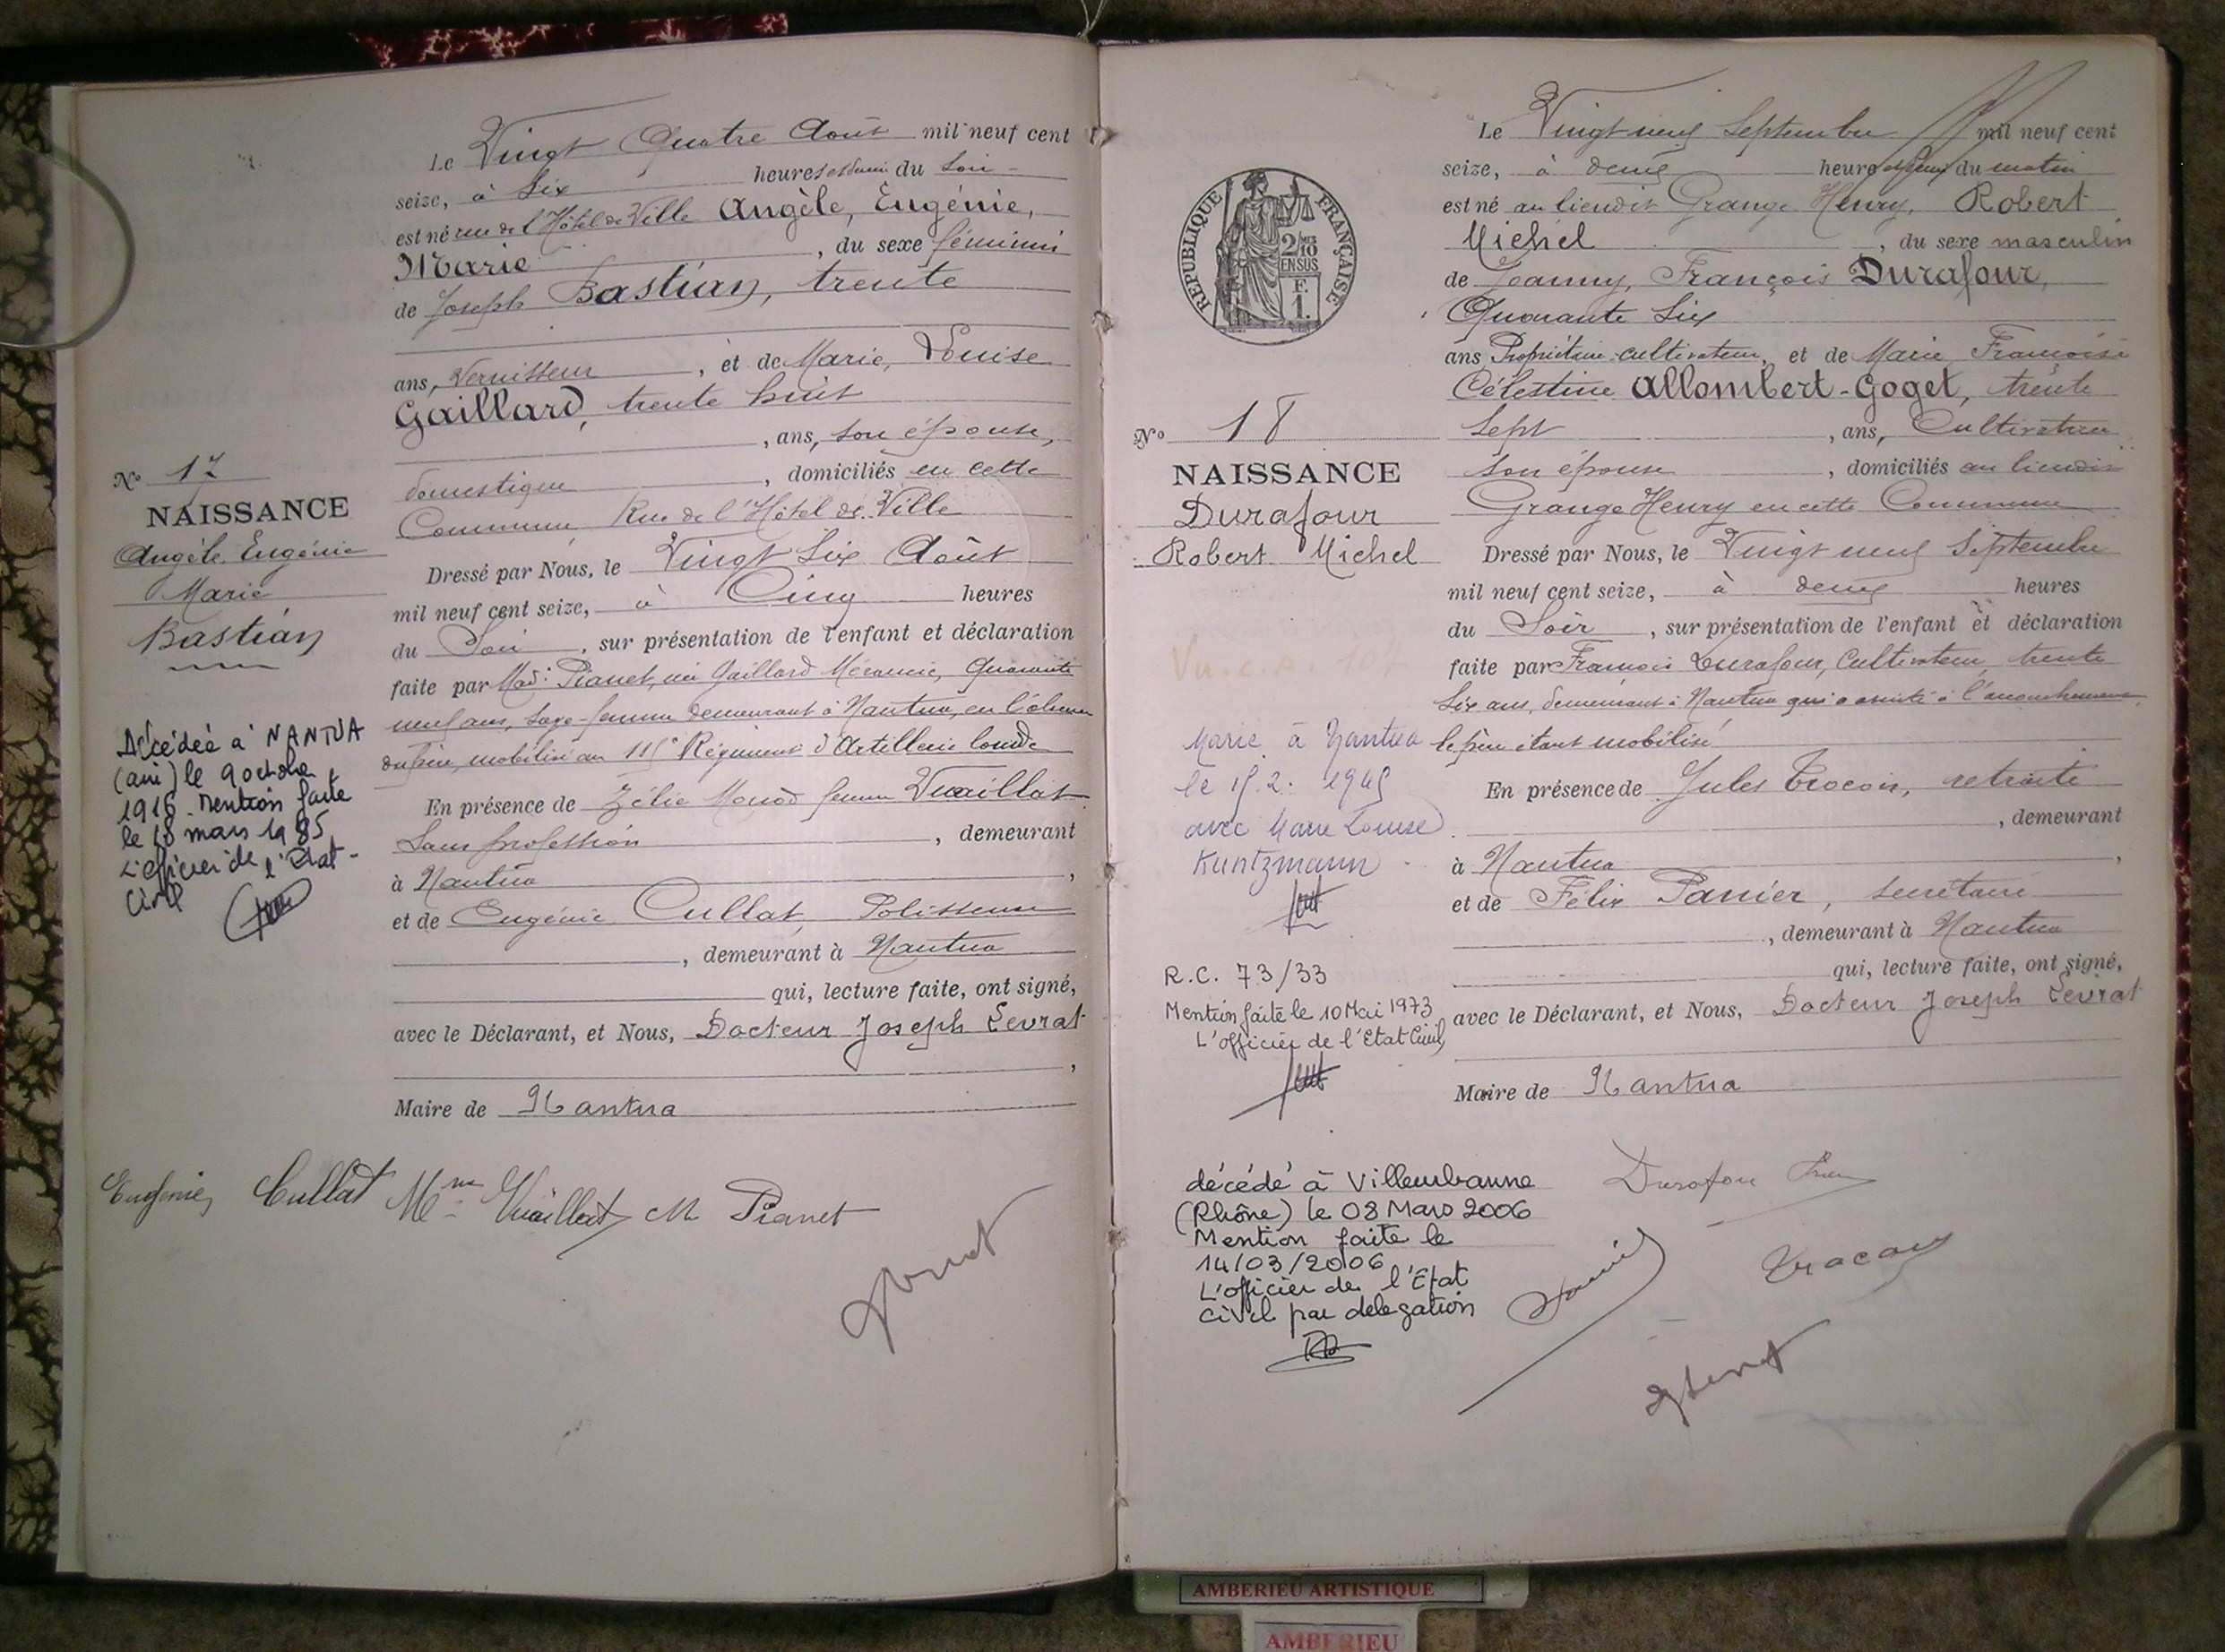 Le Vingt Quatre Août mil neuf cent
seize, à Six heures et demi du Soir
est né rue de l'Hôtel de Ville Angèle, Eugénie,
Marie, du sexe féminin
de Joseph Bastian, trente
ans, Vernisseur, et de Marie, Louise
Gaillard, trente huit
, ans, son épouse,
domestique, domiciliés en cette
Commune Rue de l'Hôtel de Ville
Dressé par Nous, le Vingt Six Août
mil neuf cent seize, à Cinq heures
du Soir, sur présentation de l'enfant et déclaration
faite par Mad: Pianet, née Gaillard, quarante
neuf ans, Sage-femme demeurant à Nantua, en l'absence
du père, mobilisé au Régiment d'Artillerie lourde
En présence de Zélie Monod femme Vuaillat
Sans profession, demeurant
à Nantua,
et de Eugénie Cullat, Polisseuse
, demeurant à Nantua
qui, lecture faite, ont signé,
avec le Déclarant, et Nous, Docteur Joseph Levrat
,
Maire de Nantua
No 17
NAISSANCE
Angèle Eugénie
Marie
Bastian
Décédée à NANTUA
(ain) le 9 octobre
1918. Mention faite
le 18 mars 1985
L'officier de l'Etat-
Civil
Eugénie Cullat Mme Vuaillat M Pianet
Le Vingt neuf Septembre mil neuf cent
seize, à deux heures du matin
est né au lieudit Grange Henry, Robert
Michel, du sexe masculin
de Joanny, François Durafour,
Quarante Six
ans Propriétaire-cultivateur, et de Marie Françoise
Célestine Allombert-Goget, trente
Sept, ans, Cultivatrice
son épouse, domiciliés au lieudit
Grange Henry en cette Commune
Dressé par Nous, le Vingt neuf Septembre
mil neuf cent seize, à deux heures
du Soir, sur présentation de l'enfant et déclaration
faite par François Durafour, Cultivateur, trente
Six ans, demeurant à Nantua qui a assisté à l'accouchement
le père étant mobilisé
En présence de Jules Trocon, retraité
, demeurant
à Nantua,
et de Félix Panier, secrétaire
, demeurant à Nantua
qui, lecture faite, ont signé,
avec le Déclarant, et Nous, Docteur Joseph Levrat
Maire de Nantua
REPUBLIQUE FRANÇAISE
2/10
EN SUS
F.
1.
No 18
NAISSANCE
Durafour
Robert Michel
Vu.c.a. 107
Marié à Nantua
le 15.2.1945
avec Marie Louise
Kuntzmann
R.C. 73/33
Mention faite le 10 Mai 1973
L'officier de l'Etat Civil,
décédé à Villeurbanne
(Rhône) le 08 Mars 2006
Mention faite le
14/03/2006
L'officier de l'Etat
Civil par délégation
AMBERIEU ARTISTIQUE
AMBERIEU